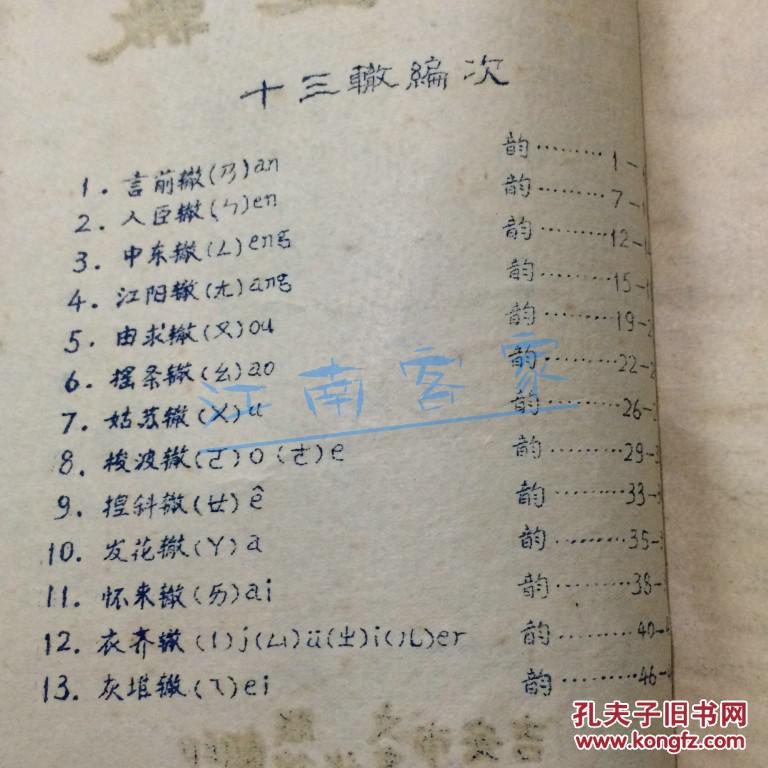 十三辙編次
1. 言前辙(ㄢ)an 韵………1-
2. 人臣辙(ㄣ)en 韵………7-
3. 中东辙(ㄥ)eng 韵………12-
4. 江阳辙(ㄤ)ang 韵………15-
5. 由求辙(ㄡ)ou 韵………19-2
6. 摇条辙(ㄠ)ao 韵………22-2
7. 姑苏辙(ㄨ)u 韵………26-
8. 梭波辙(ㄛ)o(ㄜ)e 韵………29-3
9. 捏斜辙(ㄝ)ê 韵………33-3
10. 发花辙(ㄚ)a 韵………35-3
11. 怀来辙(ㄞ)ai 韵………38-
12. 衣齐辙(ㄧ)j(ㄩ)ü(ㄓ)i(ㄦ)er 韵………40-4
13. 灰堆辙(ㄟ)ei 韵………46-
江南客家
孔夫子旧书网
www.kongfz.com